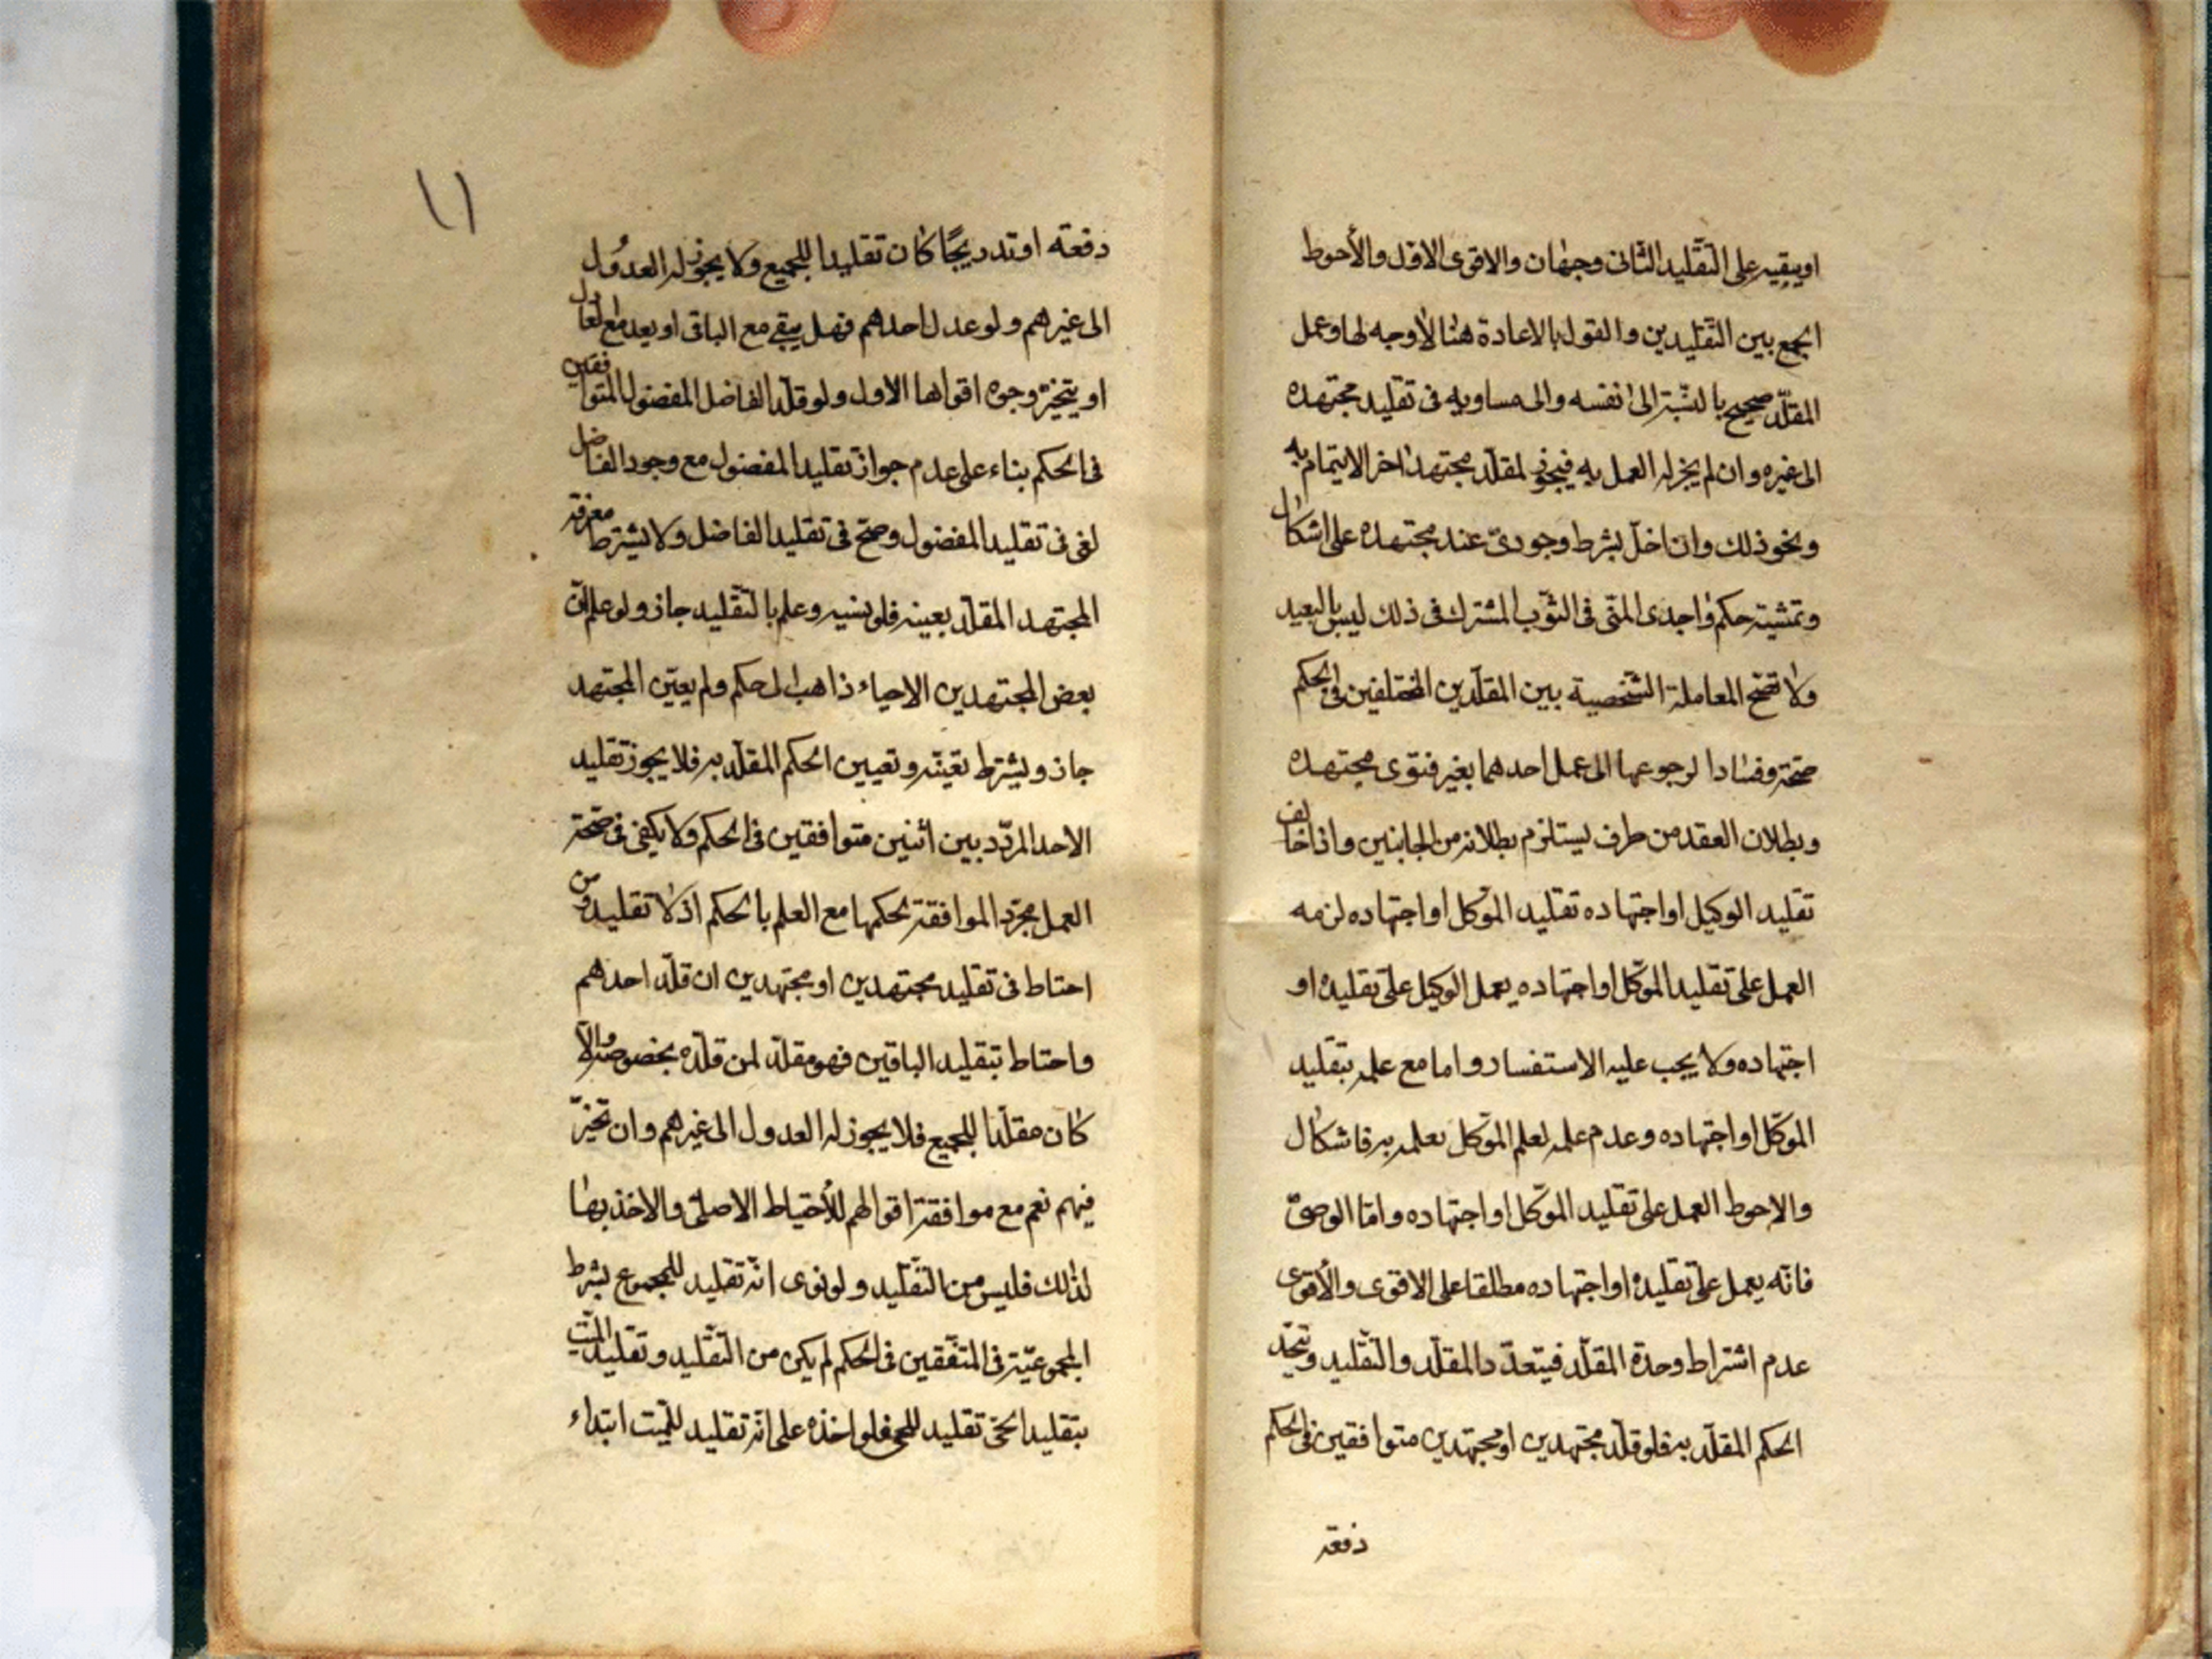 او يبقيه على التقليد الثانى وجهان والاقوى الاول والأحوط
الجمع بين التقليدين والقول بالاعادة هنا لا وجه لها وعمل
المقلّد صحيح بالنسبة الى نفسه والى مساويه فى تقليد مجتهده
الى غيره وان لم يجز له العمل به فيجوز لمقلّد مجتهد اخر الايتمام به
ونحو ذلك وان اخلّ بشرط وجودىّ عند مجتهده على اشكال
وتمشية حكم واجدى المنى فى الثوب المشترك فى ذلك ليس بالبعيد
ولا تصح المعاملة الشخصية بين المقلّدين المختلفين فى الحكم
صحّة وفسادا لرجوعها الى عمل احدهما بغير فتوى مجتهده
وبطلان العقد من طرف يستلزم بطلانه من الجانبين واذا خالف
تقليد الوكيل او اجتهاده تقليد الموكّل او اجتهاده لزمه
العمل على تقليد الموكّل او اجتهاده يعمل الوكيل على تقليده او
اجتهاده ولا يجب عليه الاستفسار واما مع علمه بتقليد
الموكّل او اجتهاده وعدم علمه لعلم الموكّل بعلمه به فاشكال
والاحوط العمل على تقليد الموكّل او اجتهاده وامّا الوصىّ
فانّه يعمل على تقليده او اجتهاده مطلقا على الاقوى والأقوى
عدم اشتراط وحدة المقلّد فيتعدّد المقلّد والتّقليد ويتّحد
الحكم المقلّد به فلو قلّد مجتهدين او مجتهدين متوافقين فى الحكم
دفعة
١١
دفعته او تدريجًا كان تقليدا للجميع ولا يجوز له العدُول
الى غيرهم ولو عدل احدهم فهل يبقى مع الباقى او يعدل مع العادل
او يتخيّر وجوه اقواها الاول ولو قلّد الفاضل المفضول المتوافقين
فى الحكم بناء على عدم جواز تقليد المفضول مع وجود الفاضل
لغى فى تقليد المفضول وصحّ فى تقليد الفاضل ولا يشترط معرفة
المجتهد المقلّد بعينه فلو نسيه وعلم بالتّقليد جاز ولو علم انّ
بعض المجتهدين الاحياء ذاهب الى حكم ولم يعيّن المجتهد
جاز ويشترط تعيّنه وتعيين الحكم المقلّد به فلا يجوز تقليد
الاحد المردّد بين اثنين متوافقين فى الحكم ولا يكفى فى صحّة
العمل مجرّد الموافقة لحكمها مع العلم بالحكم اذ لا تقليد ومن
احتاط فى تقليد مجتهدين او مجتهدين ان قلّد احدهم
واحتاط بتقليد الباقين فهو مقلّد لمن قلّده بخصوصه والّا
كان مقلّدا للجميع فلا يجوز له العدول الى غيرهم وان تخيّر
فيهم نعم مع موافقة اقوالهم للأحتياط الاصلىّ والاخذ بها
لذلك فليس من التّقليد ولو نوى انّه تقليد للمجموع بشرط
المجموعيّة فى المتّفقين فى الحكم لم يكن من التّقليد وتقليد الميّت
بتقليد الحىّ تقليد للحى فلو اخذه على انّه تقليد للميّت ابتداء